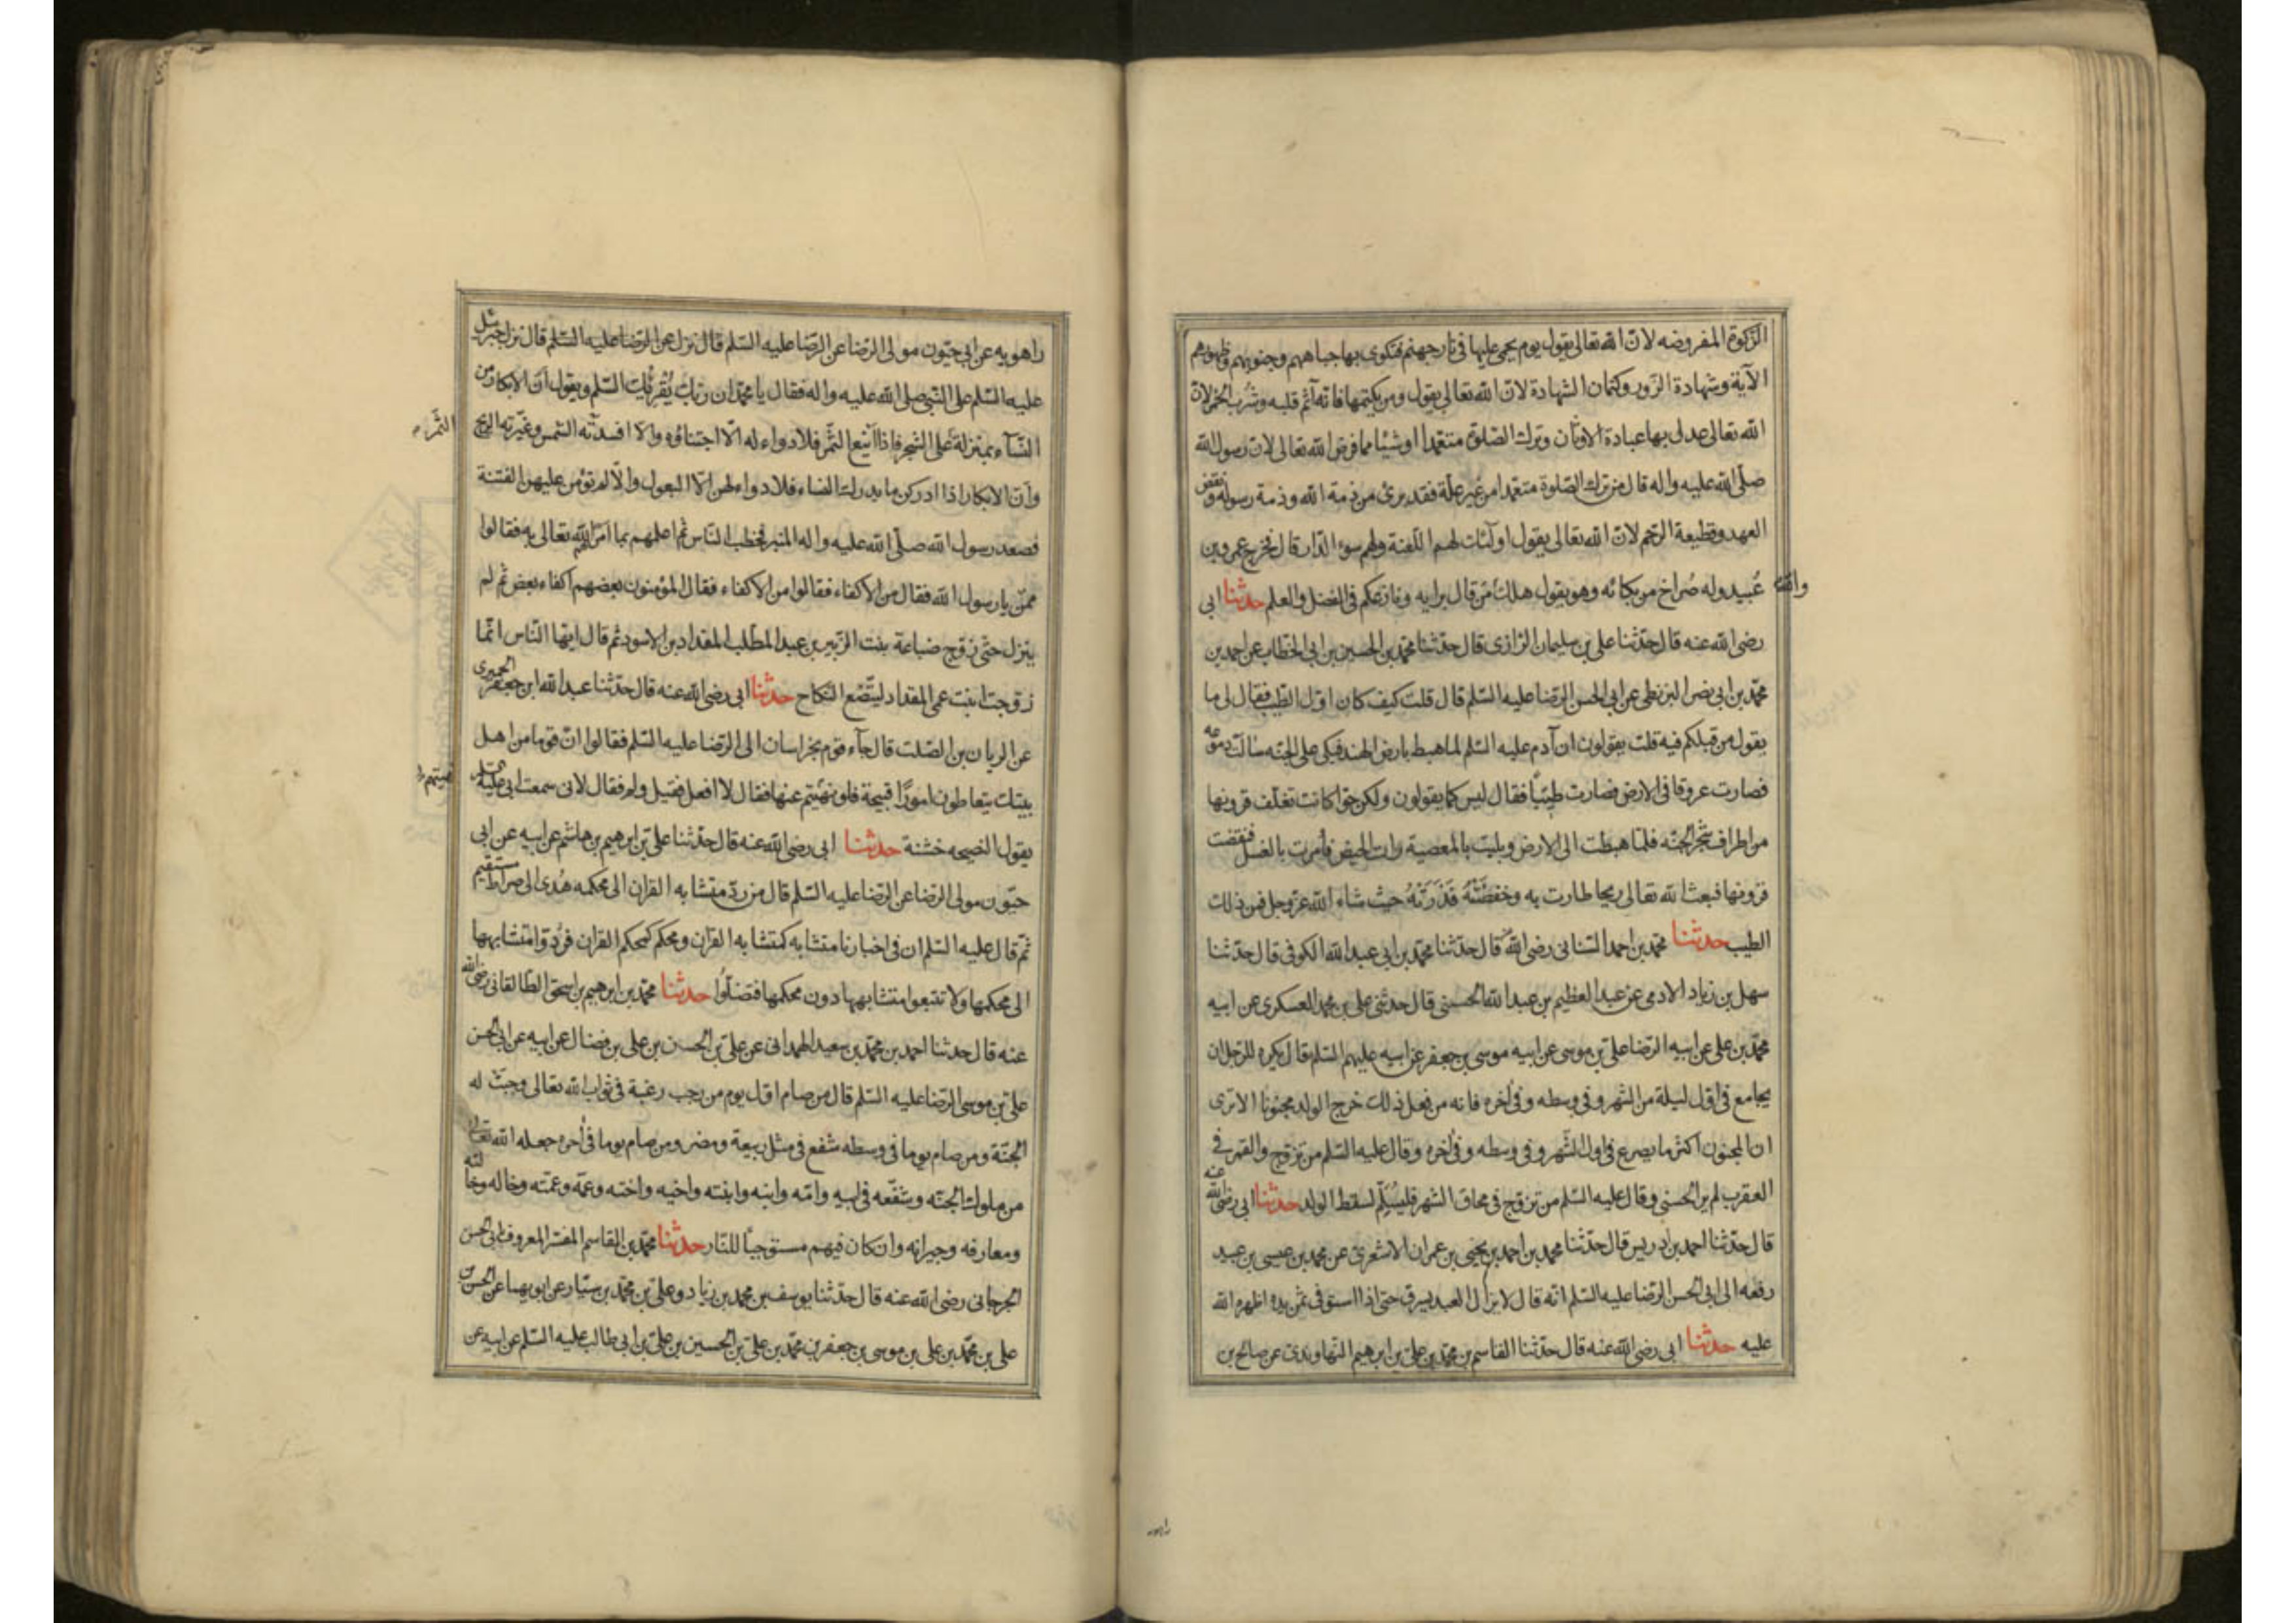 الزكوة المفروضه لان الله تعالى يقول يوم يحمى عليها فى نار جهنم فتكوى بها جباههم وجنوبهم وظهورهم
الآية وشهادة الزور وكتمان الشهادة لان الله تعالى يقول ومن يكتمها فانه آثم قلبه وشرب الخمر لان
الله تعالى عدل بها عبادة الاوثان وترك الصلوة متعمدا او شيئا مما فرض الله تعالى لان رسول الله
صلى الله عليه واله قال من ترك الصلوة متعمدا من غير علة فقد برئ من ذمة الله وذمة رسوله ونقض
العهد وقطيعة الرحم لان الله تعالى يقول اولئك لهم اللعنة ولهم سوء الدار قال فخرج عمرو بن
عبيد وله صراخ من بكائه وهو يقول هلك من قال برايه ونازعكم فى الفضل والعلم حدثنا ابى
والله
رضى الله عنه قال حدثنا على بن سليمان الرازى قال حدثنا محمد بن الحسين بن ابى الخطاب عن احمد بن
محمد بن ابى نصر البزنطى عن ابى الحسن الرضا عليه السلم قال قلت كيف كان اول الطيب فقال لى ما
يقول من قبلكم فيه قلت يقولون ان آدم عليه السلم لما هبط بارض الهند فبكى على الجنه سالت دموعه
فصارت عروقا فى الارض فصارت طيبا فقال ليس كما يقولون ولكن حوا كانت تغلف قرونها
من اطراف شجر الجنه فلما هبطت الى الارض وبليت بالمعصية رات الحيض فامرت بالغسل فنقضت
قرونها فبعث الله تعالى ريحا طارت به وخفضته فذرته حيث شاء الله عز وجل فمن ذلك
الطيب حدثنا محمد بن احمد السنانى رضى الله قال حدثنا محمد بن ابى عبد الله الكوفى قال حدثنا
سهل بن زياد الادمى عن عبد العظيم بن عبد الله الحسنى قال حدثنى على بن محمد العسكرى عن ابيه
محمد بن على عن ابيه الرضا على بن موسى عن ابيه موسى بن جعفر عن ابيه عليهم السلم قال يكره للرجل ان
يجامع فى اول ليلة من الشهر وفى وسطه وفى اخره فانه من فعل ذلك خرج الولد مجنونا الا ترى
ان المجنون اكثر ما يصرع فى اول الشهر وفى وسطه وفى اخره وقال عليه السلم من تزوج والقمر فى
العقرب لم ير الحسنى وقال عليه السلم من تزوج فى محاق الشهر فليسلم لسقط الولد حدثنا ابى رضى الله عنه
قال حدثنا احمد بن ادريس قال حدثنا محمد بن احمد بن يحيى بن عمران الاشعرى عن محمد بن عيسى بن عبيد
رفعه الى ابى الحسن الرضا عليه السلم انه قال لا يزال العبد يسرق حتى اذا استوفى ثمن يده اظهره الله
عليه حدثنا ابى رضى الله عنه قال حدثنا القاسم بن محمد بن على بن ابرهيم النهاوندى عن صالح بن
راهويه
راهويه عن ابى حيون مولى الرضا عن الرضا عليه السلم قال نزل عن الرضا عليه السلم قال نزل جبرئيل
عليه السلم على النبى صلى الله عليه واله فقال يا محمد ان ربك يقرئك السلم ويقول ان الابكار من
النساء بمنزلة على الشجر فاذا اينع الثمر فلا دواء له الا اجتناؤه والا افسدته الشمس وغيرته الريح
الثمر
وان الابكار اذا ادركن ما يدرك النساء فلا دواء لهن الا البعول والا لم تؤمن عليهن الفتنة
فصعد رسول الله صلى الله عليه واله المنبر فخطب الناس ثم اعلمهم بما امر الله تعالى به فقالوا
ممن يا رسول الله فقال من الاكفاء فقالوا من الاكفاء فقال المؤمنون بعضهم اكفاء بعض ثم لم
ينزل حتى زوج ضباعة بنت الزبير بن عبد المطلب المقداد بن الاسود ثم قال ايها الناس انما
زوجت ابنت عمى المقداد ليتضع النكاح حدثنا ابى رضى الله عنه قال حدثنا عبد الله ابن جعفر الحميرى
عن الريان بن الصلت قال جآء قوم بخراسان الى الرضا عليه السلم فقالوا ان قوما من اهل
بيتك يتعاطون امورا قبيحة فلو نهيتم عنها فقال لا افعل فقيل ولم فقال لانى سمعت ابى عليه السلم
نهيتهم
يقول النصيحه خشنة حدثنا ابى رضى الله عنه قال حدثنا على بن ابرهيم بن هاشم عن ابيه عن ابى
حيون مولى الرضا عن الرضا عليه السلم قال من رد متشابه القران الى محكمه هدى الى صراط مستقيم
ثم قال عليه السلم ان فى اخبارنا متشابه كمتشابه القران ومحكم كمحكم القران فردوا متشابهها
الى محكمها ولا تتبعوا متشابهها دون محكمها فتضلوا حدثنا محمد بن ابرهيم بن اسحق الطالقانى رضى الله
عنه قال حدثنا احمد بن محمد بن سعيد الهمدانى عن على بن الحسن بن على بن فضال عن ابيه عن ابى الحسن
على بن موسى الرضا عليه السلم قال من صام اول يوم من رجب رغبة فى ثواب الله تعالى وجبت له
الجنة ومن صام يوما فى وسطه شفع فى مثل ربيعة ومضر ومن صام يوما فى اخره جعله الله تعالى
من ملوك الجنه وشفعه فى ابيه وامه وابنه وابنته واخيه واخته وعمه وعمته وخاله وخالته
ومعارفه وجيرانه وان كان فيهم مستوجبا للنار حدثنا محمد بن القاسم المفسر المعروف بابى الحسن
الجرجانى رضى الله عنه قال حدثنا يوسف بن محمد بن زياد وعلى بن محمد بن سيار عن ابويهما عن الحسن بن
على بن محمد بن على بن موسى بن جعفر بن محمد بن على بن الحسين بن على بن ابى طالب عليه السلم عن ابيه عن